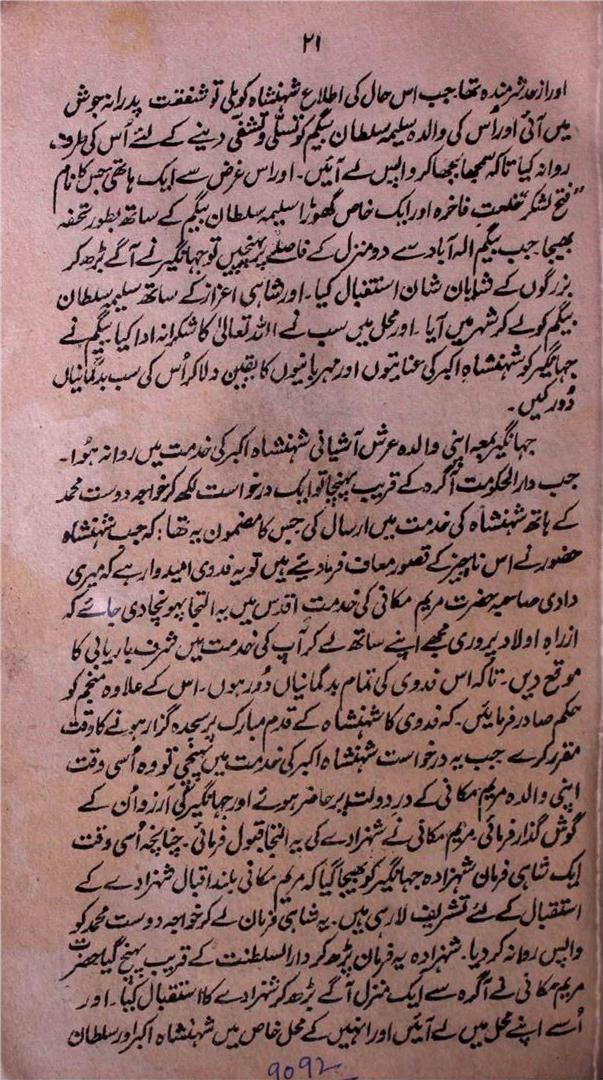 ۲۱
اور از حد شرمندہ تھا۔ جب اس حال کی اطلاع شہنشاہ کو ملی تو شفقت پدرانہ جوش
میں آئی اور اُس کی والدہ سلیمہ سلطان بیگم کو تسلّی و تشفّی دینے کے لئے اُس کی طرف
روانہ کیا تاکہ سمجھا بجھا کر واپس لے آئیں۔ اور اس غرض سے ایک ہاتھی جس کا نام
"فتح لشکر" خلعتِ فاخرہ اور ایک خاص گھوڑا سلیمہ سلطان بیگم کے ساتھ بطور تحفہ
بھیجا۔ جب بیگم الہ آباد سے دو منزل کے فاصلے پر پہنچیں تو جہانگیر نے آگے بڑھ کر
بزرگوں کے شایان شان استقبال کیا۔ اور شاہی اعزاز کے ساتھ سلیمہ سلطان
بیگم کو لے کر شہر میں آیا۔ اور محل میں سب نے اللہ تعالیٰ کا شکرانہ ادا کیا۔ بیگم نے
جہانگیر کو شہنشاہِ اکبر کی عنایتوں اور مہربانیوں کا یقین دلا کر اُس کی سب بدگمانیاں
دُور کیں۔
جہانگیر بمعہ اپنی والدہ عرش آشیانی شہنشاہ اکبر کی خدمت میں روانہ ہوُا۔
جب دارالحکومت آگرہ کے قریب پہنچا تو ایک درخواست لکھ کر خواجہ دوست محمد
کے ہاتھ شہنشاہ کی خدمت میں ارسال کی جس کا مضمون یہ تھا: کہ جب شہنشاہ
حضور نے اس ناچیز کے قصور معاف فرما دیئے ہیں تو یہ فدوی امیدوار ہے کہ میری
دادی صاحبہ حضرت مریم مکانی کی خدمتِ اقدس میں یہ التجا پہونچا دی جائے کہ
از راہِ اولاد پروری مجھے اپنے ساتھ لے کر آپ کی خدمت میں شرف باریابی کا
موقع دیں۔ تاکہ اس فدوی کی تمام بدگمانیاں دُور ہوں۔ اس کے علاوہ منجم کو
حکم صادر فرمائیں۔ کہ فدوی کا شہنشاہ کے قدم مبارک پر سجدہ گزار ہونے کا وقت
مقرر کرے۔ جب یہ درخواست شہنشاہ اکبر کی خدمت میں پہنچی تو وہ اُسی وقت
اپنی والدہ مریم مکانی کے درِ دولت پر حاضر ہوئے اور جہانگیر کی آرزو اُن کے
گوش گذار فرمائی۔ مریم مکانی نے شہزادے کی یہ التجا قبول فرمائی۔ چنانچہ اُسی وقت
ایک شاہی فرمان شہزادہ جہانگیر کو بھیجا گیا کہ مریم مکانی بلند اقبال شہزادے کے
استقبال کے لئے تشریف لا رہی ہیں۔ یہ شاہی فرمان لے کر خواجہ دوست محمد کو
واپس روانہ کر دیا۔ شہزادہ یہ فرمان پڑھ کر دارالسلطنت کے قریب پہنچ گیا۔ حضرت
مریم مکانی نے آگرہ سے ایک منزل آگے بڑھ کر شہزادے کا استقبال کیا۔ اور
اُسے اپنے محل میں لے آئیں اور انہیں کے محل خاص میں شہنشاہ اکبر اور سلطان
9092